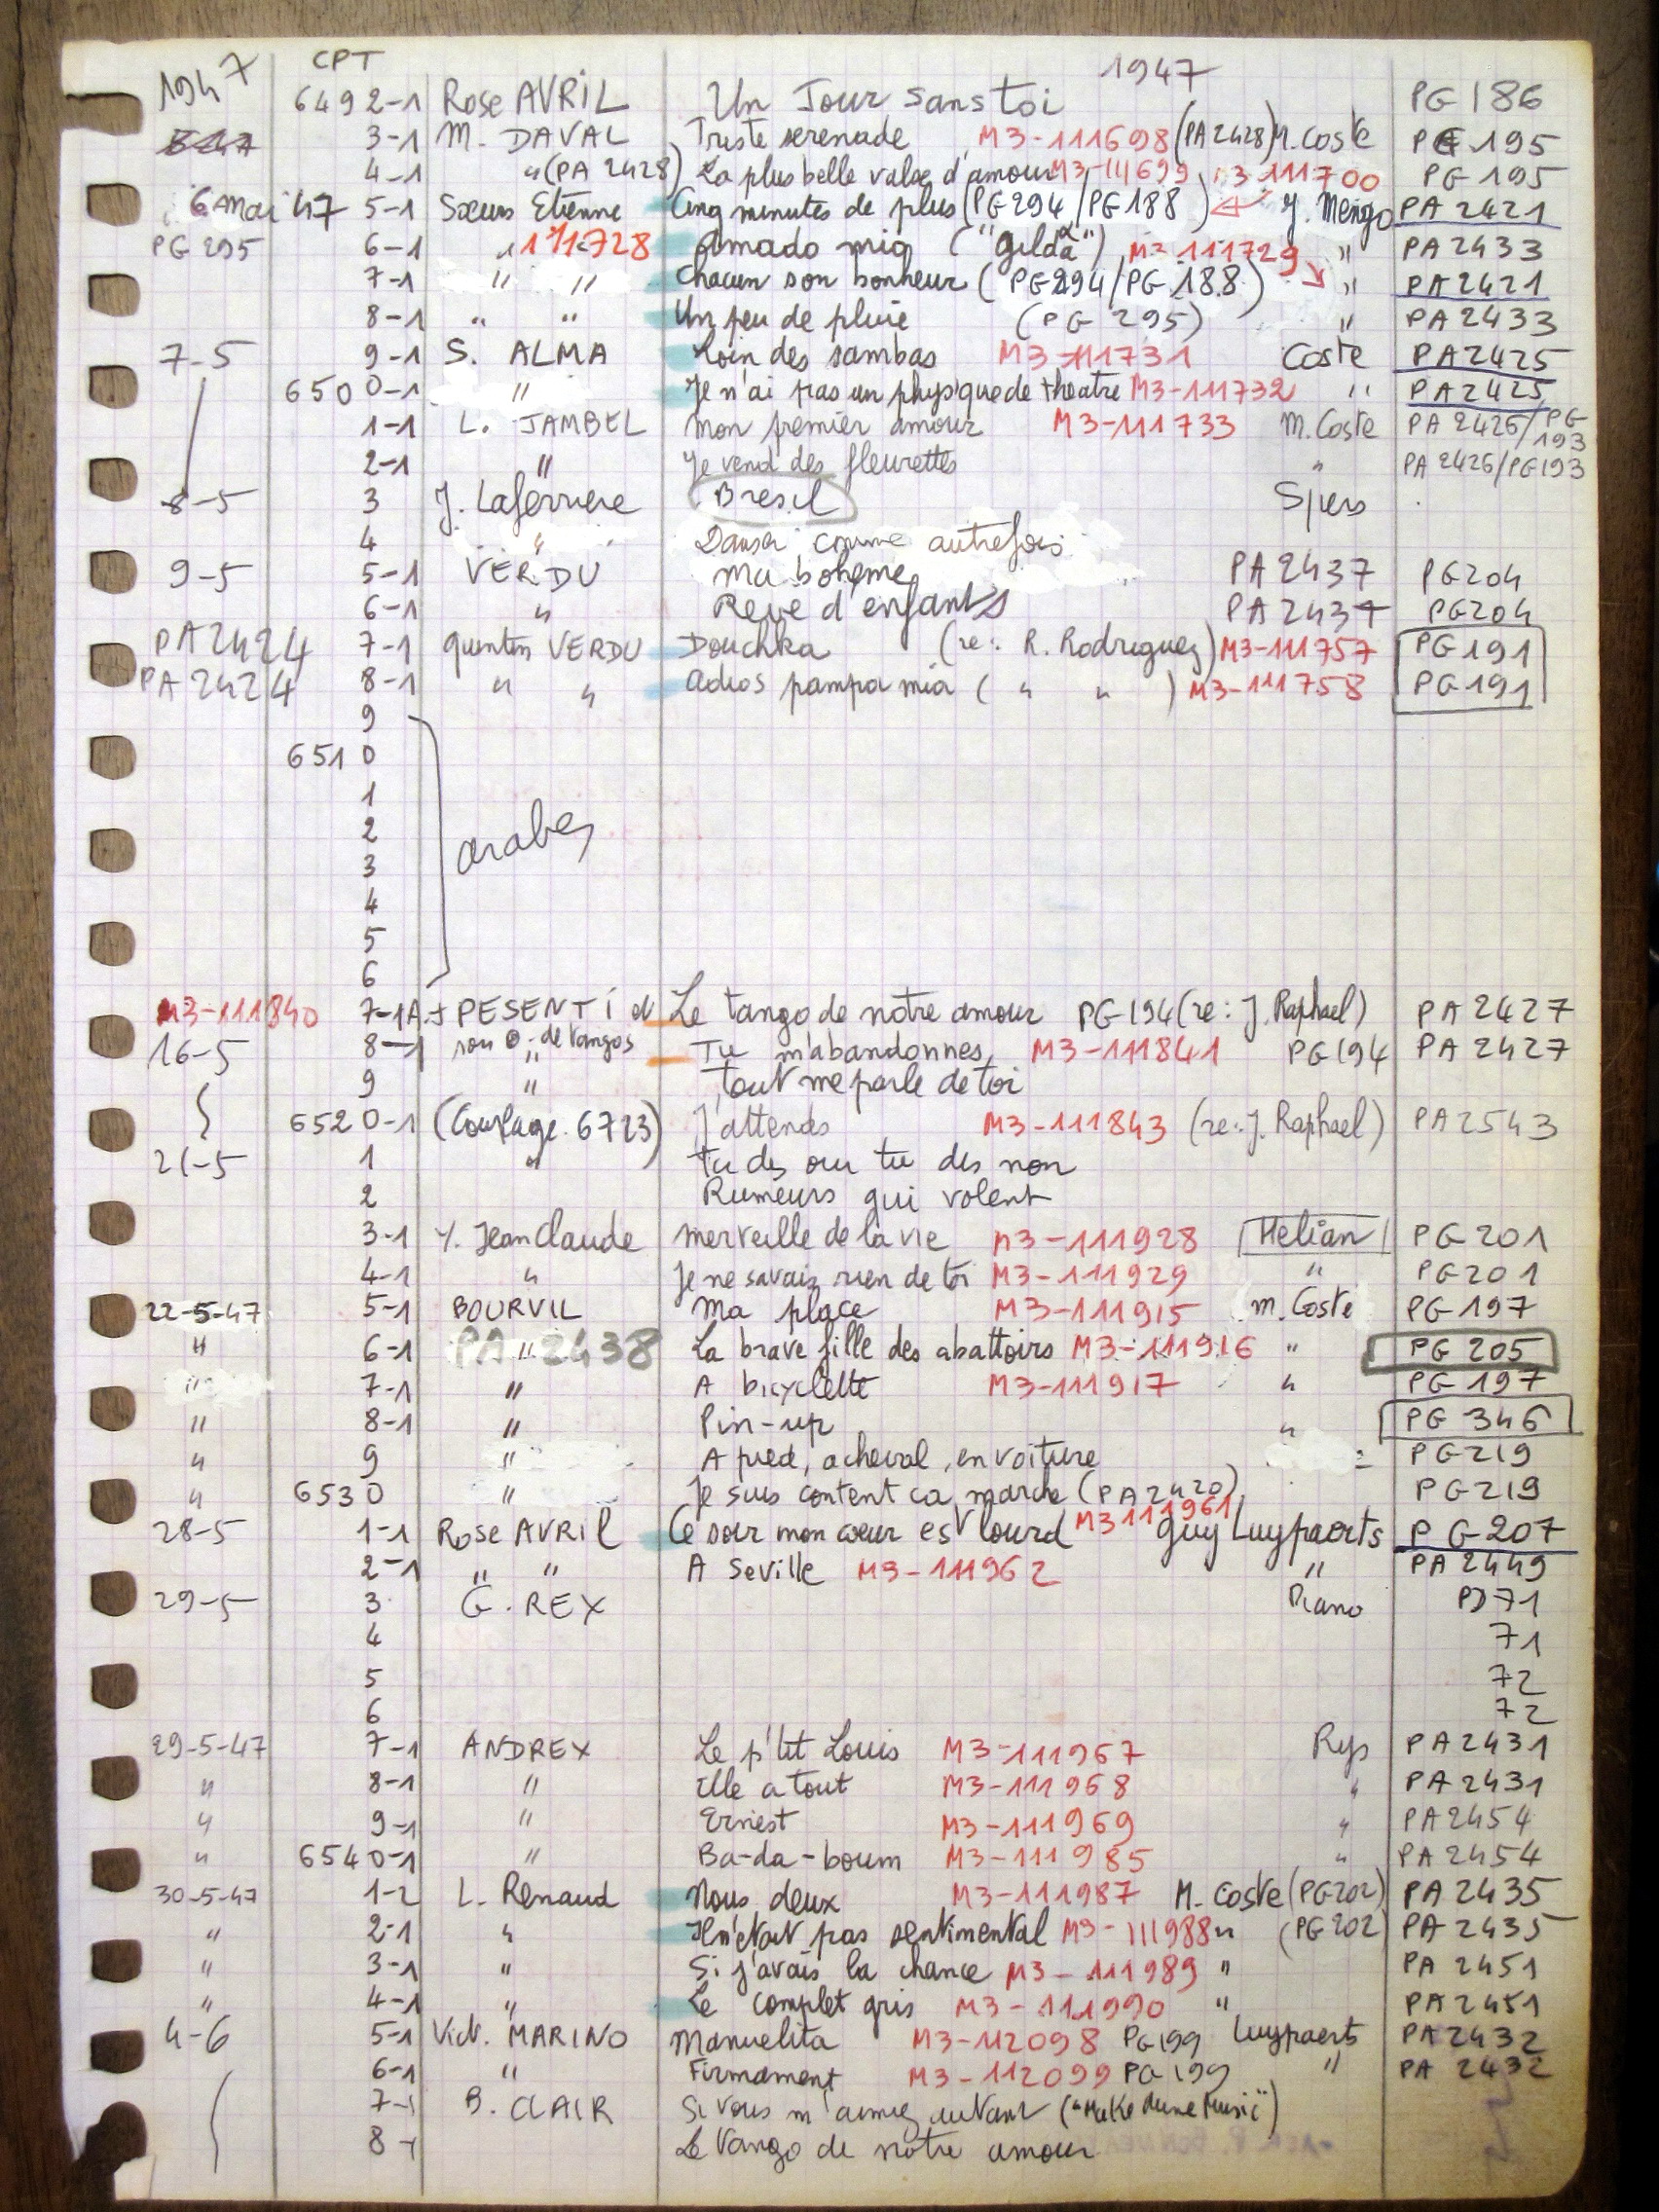 1947 CPT 1947
6492-1 Rose AVRIL Un Jour sans toi PG 186
3-1 M. DAVAL Triste serenade M3-111698 (PA2428) M. Coste PG 195
4-1 " (PA 2428) La plus belle valse d'amour M3-111699 M3-111700 PG 195
6 mai 47 5-1 Sœurs Etienne Cinq minutes de plus (PG 294/PG 188) J. Mengo PA 2421
PG 295 6-1 " 111728 Amado mia ("Gilda") M3-111729 " PA 2433
7-1 " " Chacun son bonheur (PG294/PG 188) " PA 2421
8-1 " " Un peu de pluie (PG 295) " PA 2433
7-5 9-1 S. ALMA Loin des sambas M3-111731 Coste PA2425
6500-1 " Je n'ai pas un physique de theatre M3-111732 " PA2425
1-1 L. JAMBEL mon premier amour M3-111733 M. Coste PA 2426/PG 193
2-1 " Je vend des fleurettes " PA 2426/PG193
8-5 3 J. Laferriere Bresil Spiers
4 " Danser comme autrefois
9-5 5-1 VERDU Ma boheme PA 2437 PG204
6-1 " Reve d'enfants PA 2437 PG204
PA2424 7-1 quentin VERDU Douchka (re: R. Rodriguez) M3-111757 PG191
PA2424 8-1 " " Adios pampa mia ( " " ) M3-111758 PG191
9
6510
1
2 arabes
3
4
5
6
M3-111840 7-1 A.+ PESENTI et Le tango de notre amour PG 194 (re: J. Raphael) PA 2427
16-5 8-1 son O. de tangos " Tu m'abandonnes M3-111841 PG194 PA 2427
9 " Tout me parle de toi
6520-1 (Couplage 6723) J'attends M3-111843 (re: J. Raphael) PA2543
21-5 1 " Tu dis oui tu dis non
2 Rumeurs qui volent
3-1 Y. Jean Claude merveille de la vie M3-111928 Helian PG 201
4-1 " Je ne savais rien de toi M3-111929 " PG201
22-5-47 5-1 BOURVIL Ma place M3-111915 m. Coste PG 197
" 6-1 PA " 2438 La brave fille des abattoirs M3-111916 " PG 205
" 7-1 " A bicyclette M3-111917 " PG 197
" 8-1 " Pin-up " PG 346
" 9 " A pied, a cheval, en voiture = PG219
" 6530 " Je suis content ca marche (PA2420) PG219
28-5 1-1 Rose AVRIL Ce soir mon cœur est lourd M3 111961 Guy Luypaerts PG-207
2-1 " " A Seville M3-111962 " PA2449
29-5 3 G. REX Piano PD71
4 71
5 72
6 72
29-5-47 7-1 ANDREX Le p'tit Louis M3-111967 Rys PA2431
" 8-1 " Elle a tout M3-111968 " PA2431
" 9-1 " Ernest M3-111969 " PA2454
" 6540-1 " Ba-da-boum M3-111985 " PA2454
30-5-47 1-2 L. Renaud Nous deux M3-111987 M. Coste (PG202) PA 2435
" 2-1 " Il n'etait pas sentimental M3-111988 " (PG202) PA 2435
" 3-1 " Si j'avais la chance M3-111989 " PA 2451
" 4-1 " Le complet gris M3-111990 " PA2451
4-6 5-1 Vict. MARINO Manuelita M3-112098 PG199 Luypaerts PA2432
6-1 " Firmament M3-112099 PG 199 " PA 2432
7-1 B. CLAIR Si vous m'aimiez autant ("Make Mine Music")
8-1 Le tango de notre amour